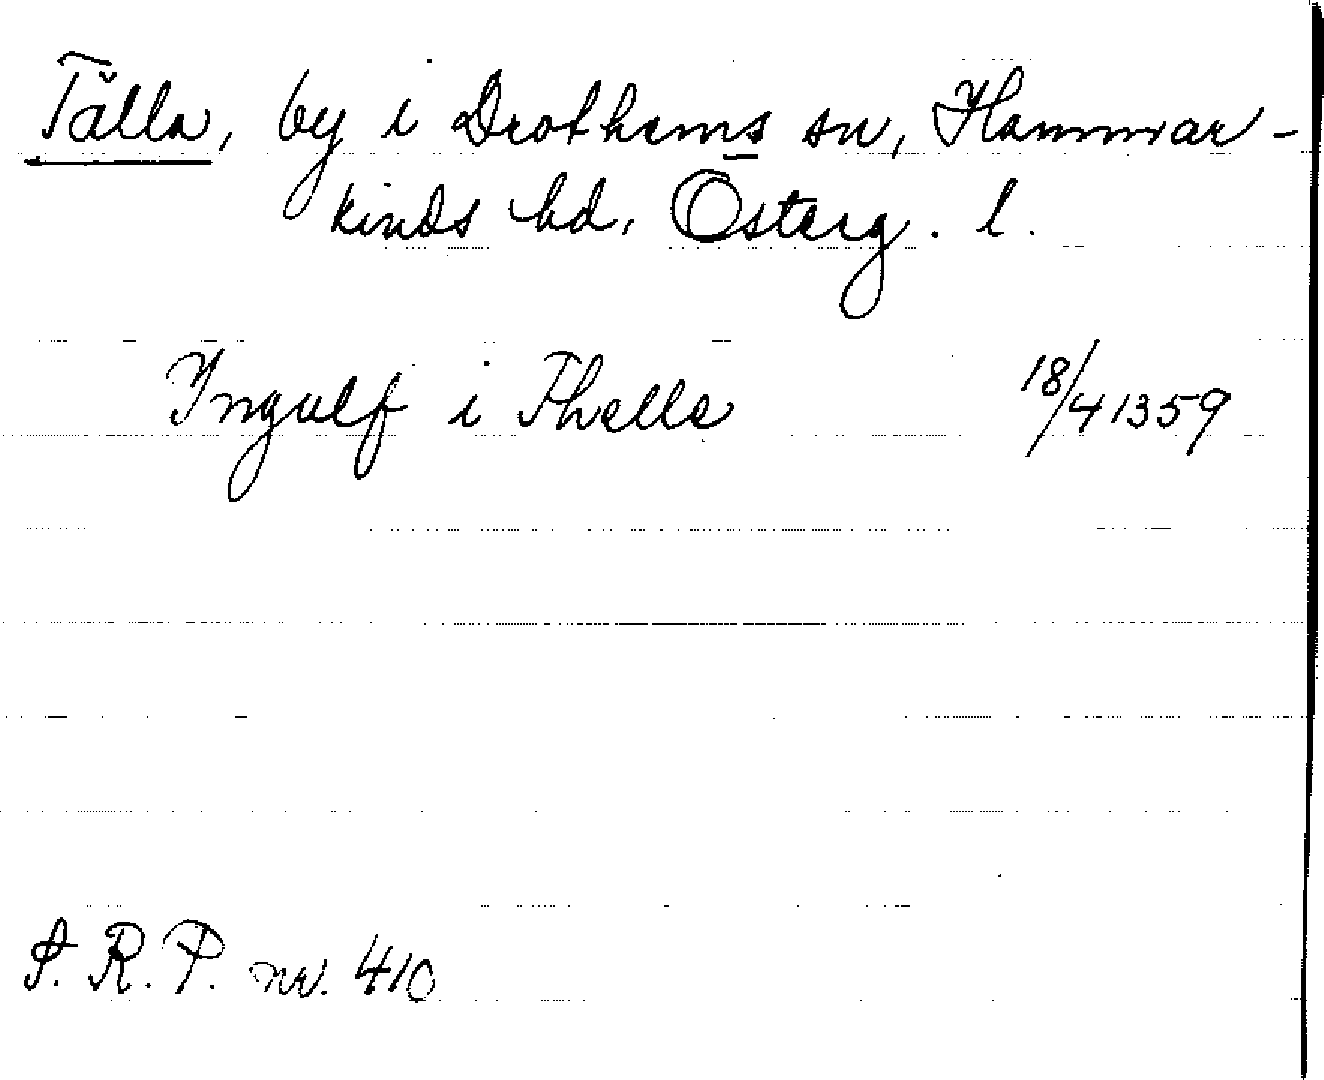 Tälla, by i Drothems sn, Hammar-
kinds hd, Österg. l.
Ingulf i Thelle 18/4 1359
S. R. P. nr. 410